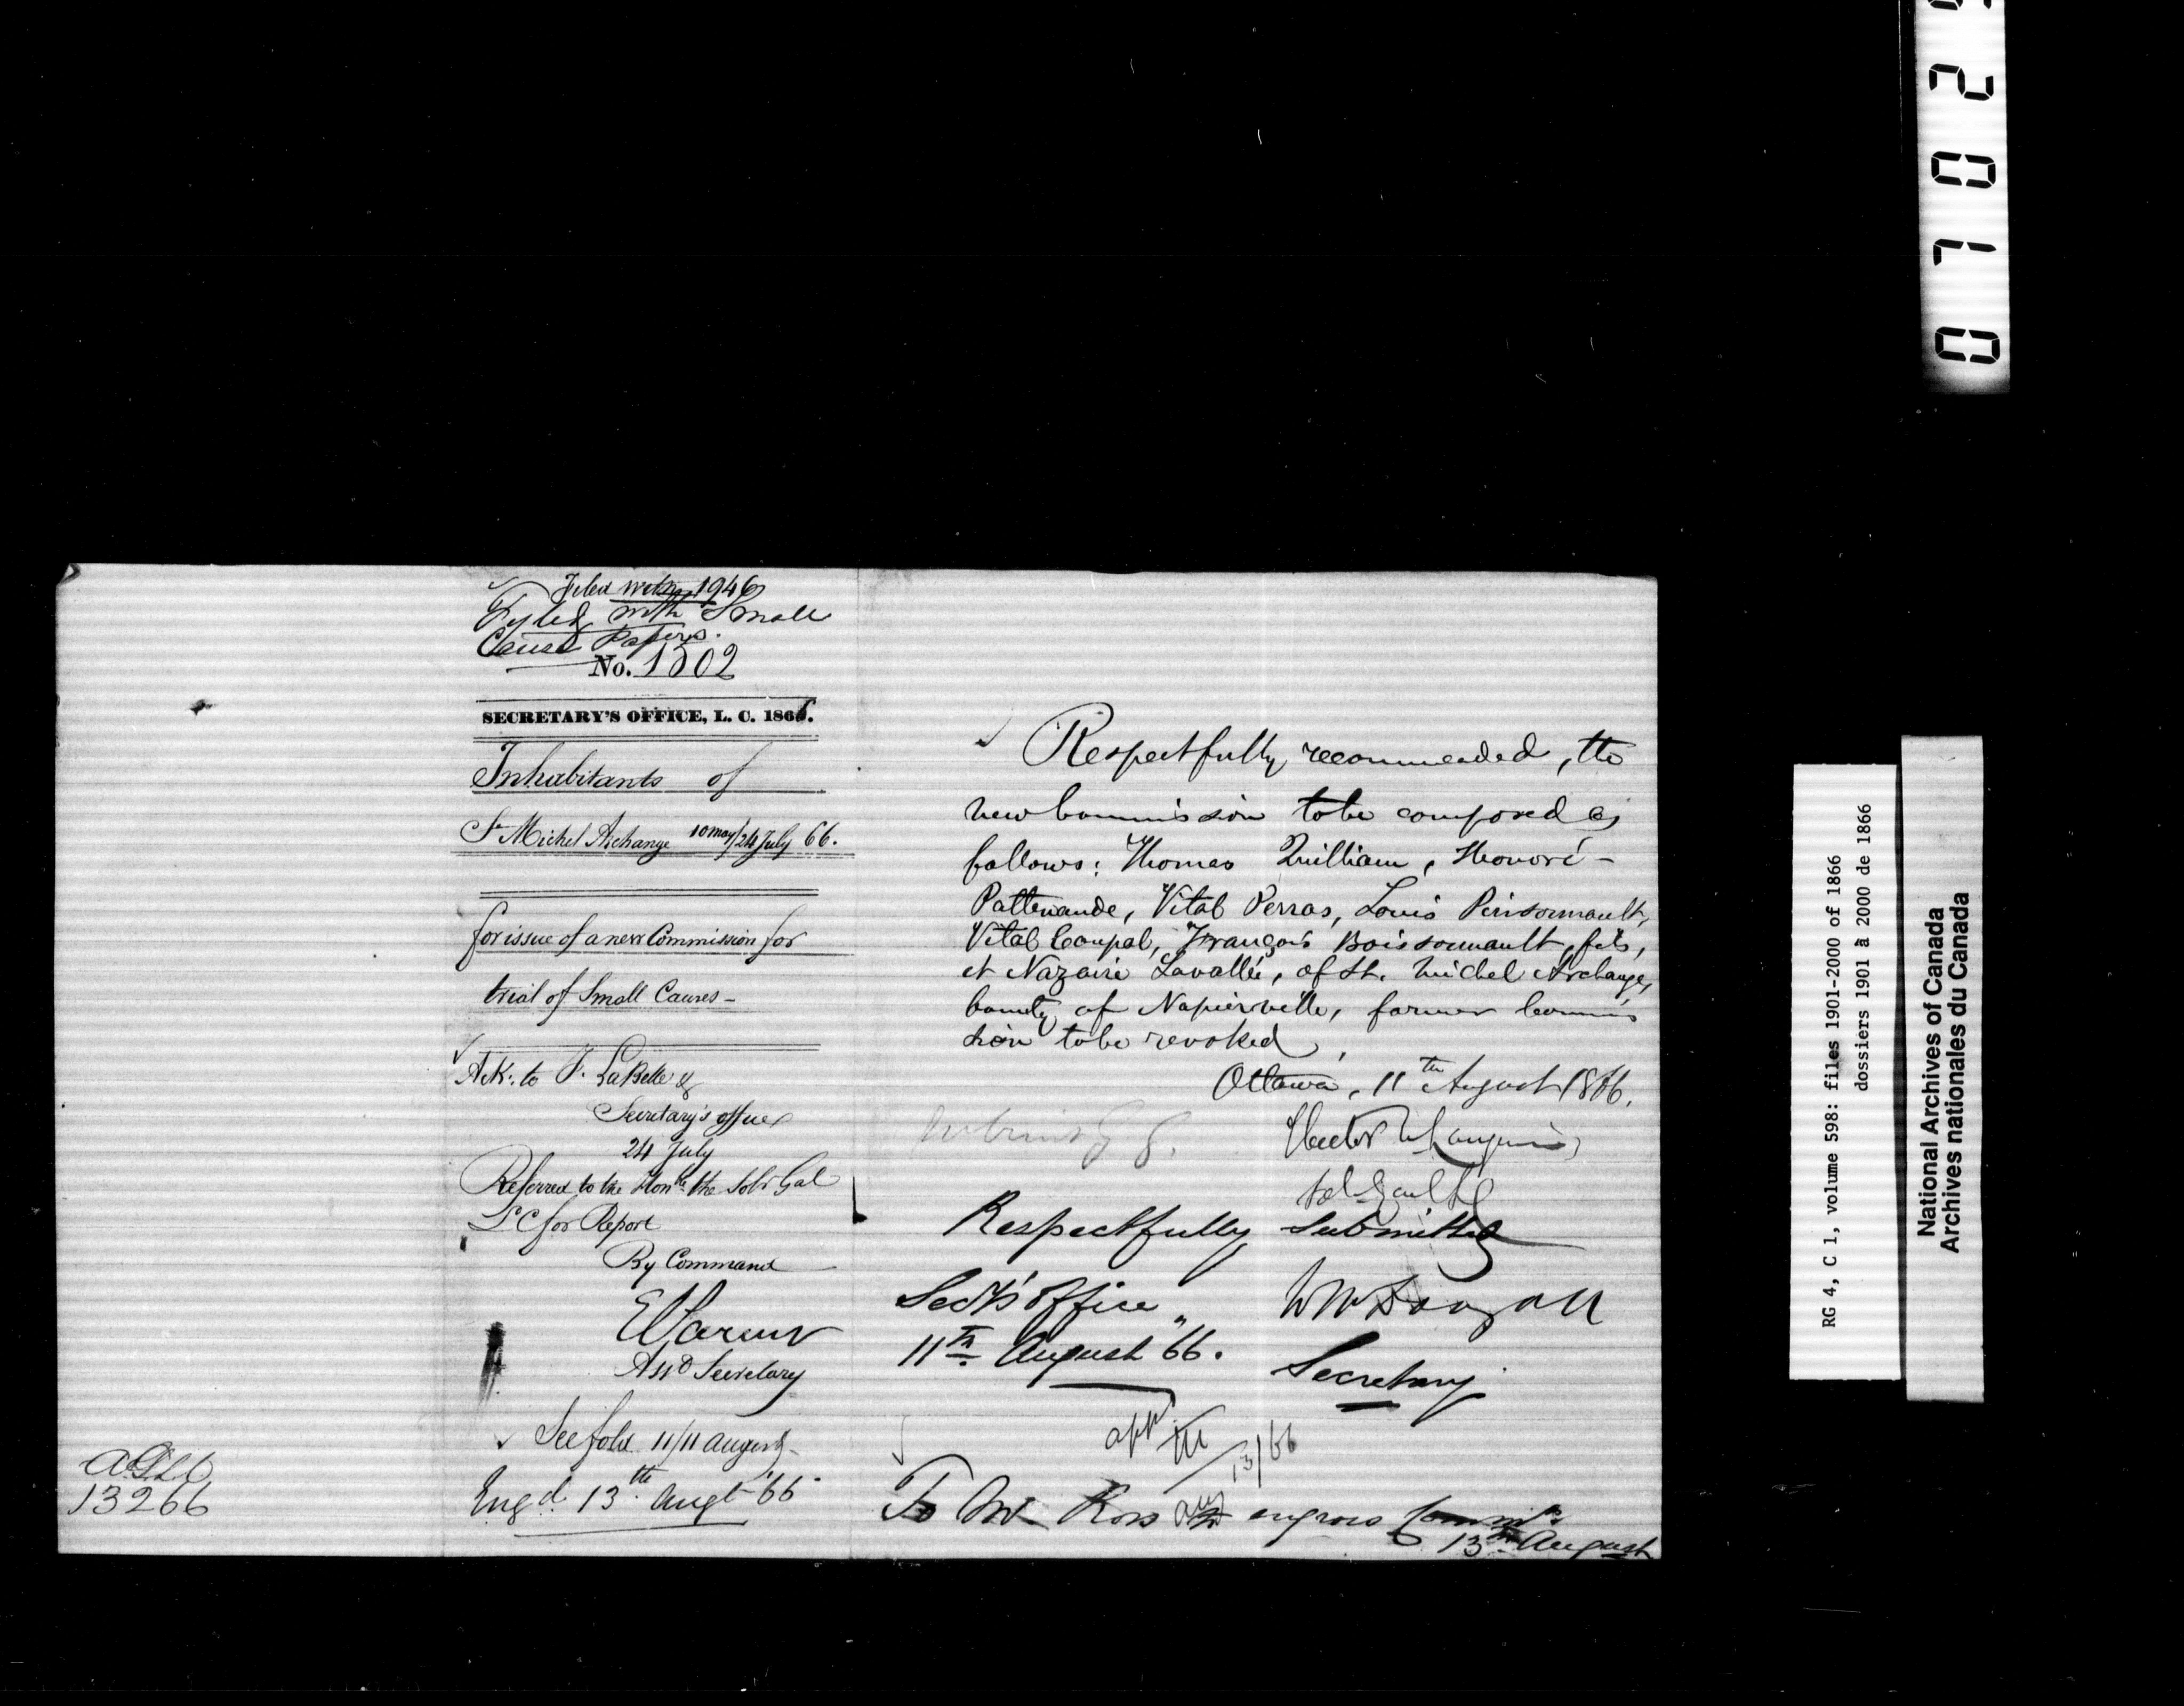 Filed with 1946
Fyled with Small
Cause Papers.
No. 1502
SECRETARY'S OFFICE, L. C. 1866.
Inhabitants of
St Michel Archange 10 may/24 July 66.
for issue of a new Commission for
trial of Small Causes -
Ack. to F. LaBelle &
Secretary's office
24 July
Referred to the Honble the Solr Gal
L C for Report
By Command
Asst Secretary
See fold 11/11 august
Engd 13th Augt 66
13266
Respectfully recommended, the
new Commission to be composed as
follows: Thomas Quilliam, Honoré
Pattenaude, Vital Perras, Louis Pinsonnault,
Vital Coupal, François Boissonnault, fils,
et Nazaire Lavallée, of St. Michel Archange,
County of Napierville, former Commis
sion to be revoked,
Ottawa, 11th August 1866.
Hector L. Langevin
Respectfully Submitted
Sec's Office
11th August 66.
W McDougall
Secretary
app
13/66
To Mr Ross to engross Commn
13th August
0 1 0 2
RG 4, C 1, volume 598: files 1901-2000 of 1866
dossiers 1901 à 2000 de 1866
National Archives of Canada
Archives nationales du Canada